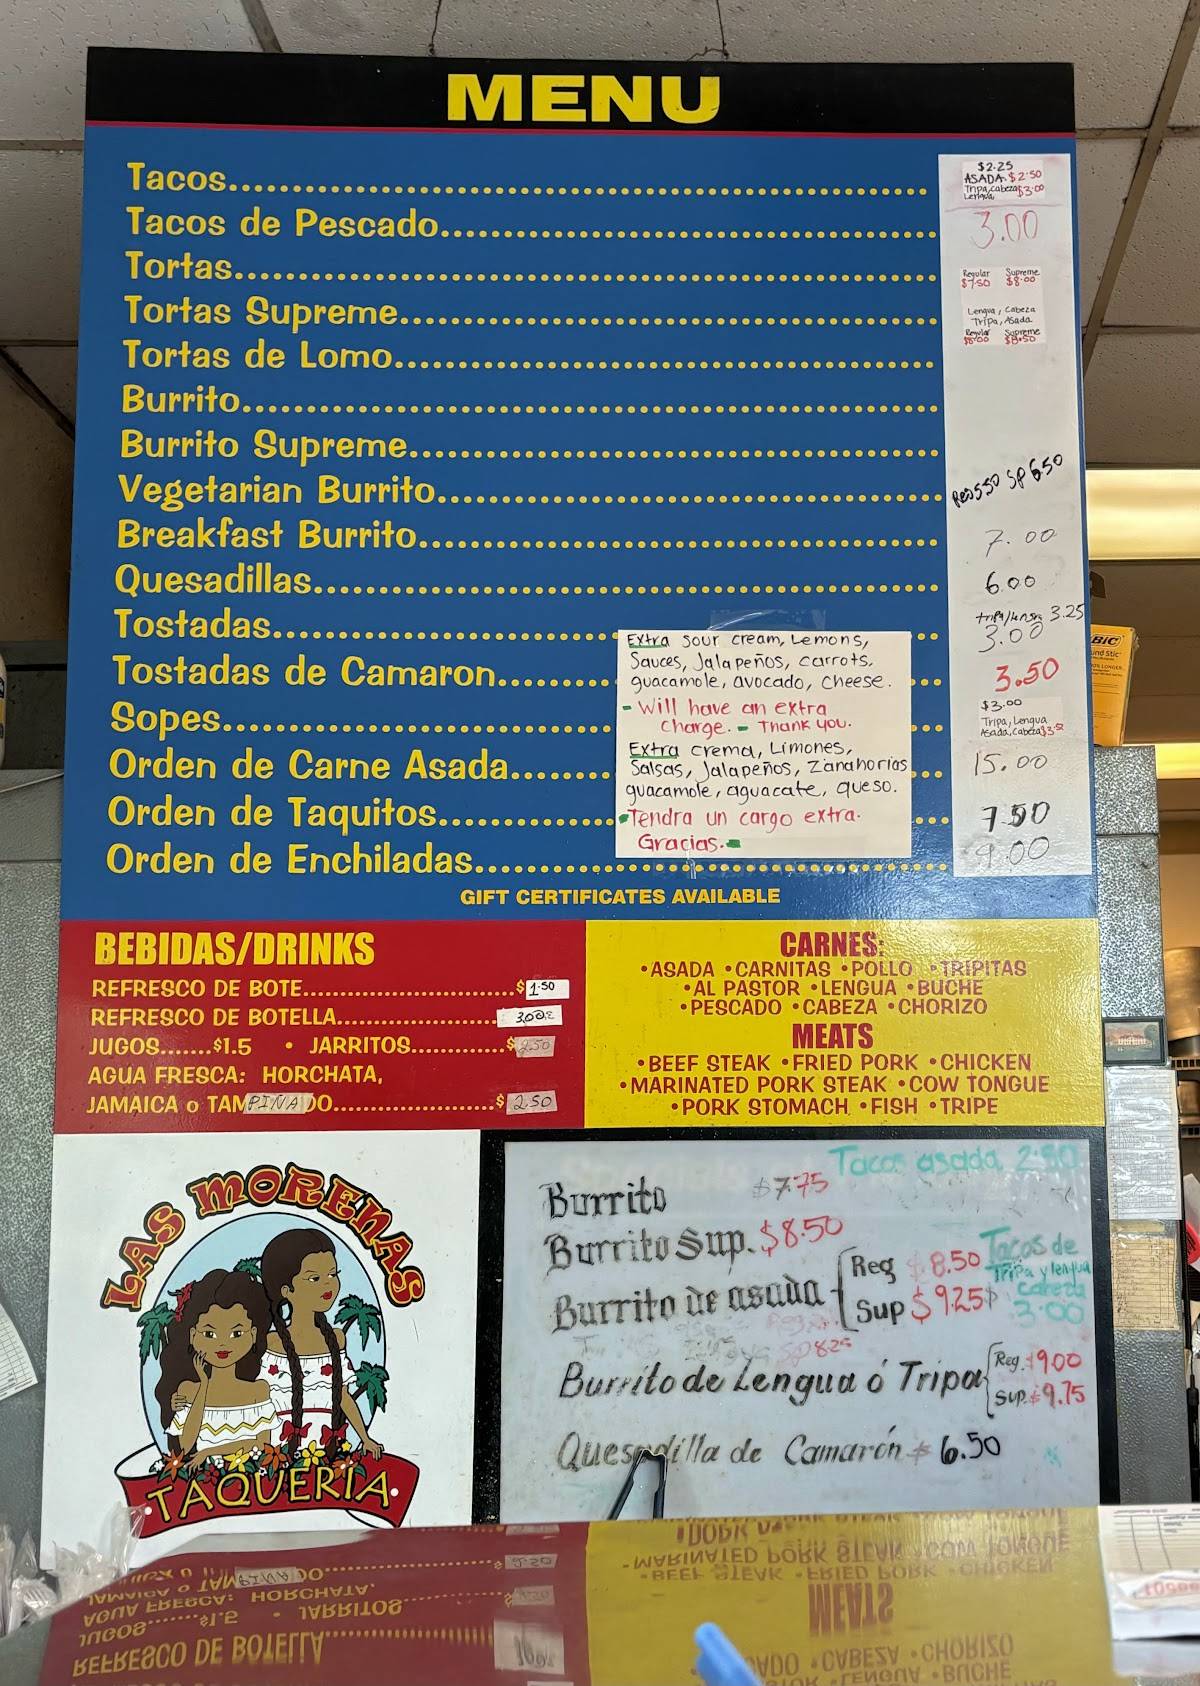 MENU
Tacos
$2.25
ASADA $2.50
Tripa, cabeza $3.00
Lengua
Tacos de Pescado
3.00
Tortas
Regular Supreme
$7.50 $8.00
Tortas Supreme
Lengua, Cabeza
Tripa, Asada
Regular Supreme
$8.00 $8.50
Tortas de Lomo
Burrito
Burrito Supreme
Vegetarian Burrito
Reg 550 SP 650
Breakfast Burrito
7.00
Quesadillas
6.00
Tostadas
3.25
3.00
Tostadas de Camaron
3.50
Sopes
$3.00
Tripa, Lengua
Asada, Cabeza $3.50
Orden de Carne Asada
15.00
Orden de Taquitos
7.50
Orden de Enchiladas
9.00
Extra Sour cream, Lemons,
Sauces, Jalapeños, carrots,
guacamole, avocado, cheese.
- Will have an extra
charge. - Thank you.
Extra crema, Limones,
Salsas, Jalapeños, Zanahorias
guacamole, aguacate, queso.
Tendra un cargo extra.
Gracias.
GIFT CERTIFICATES AVAILABLE
BEBIDAS/DRINKS
REFRESCO DE BOTE $1.50
REFRESCO DE BOTELLA 3.00
JUGOS.......$1.5 • JARRITOS $2.50
AGUA FRESCA: HORCHATA,
JAMAICA o TAMPIÑADO $2.50
CARNES:
•ASADA •CARNITAS •POLLO •TRIPITAS
•AL PASTOR •LENGUA •BUCHE
•PESCADO •CABEZA •CHORIZO
MEATS
•BEEF STEAK •FRIED PORK •CHICKEN
•MARINATED PORK STEAK •COW TONGUE
•PORK STOMACH •FISH •TRIPE
LAS MORENAS
TAQUERIA
Tacos asada 2.50
Burrito $7.75
Burrito Sup. $8.50
Burrito de asada
Reg $8.50
Sup $9.25
Tacos de
Tripa y lengua
Cabeza
3.00
SP 8.25
Burrito de Lengua ó Tripa
Reg. $9.00
Sup. $9.75
Quesadilla de Camarón $6.50
BIC